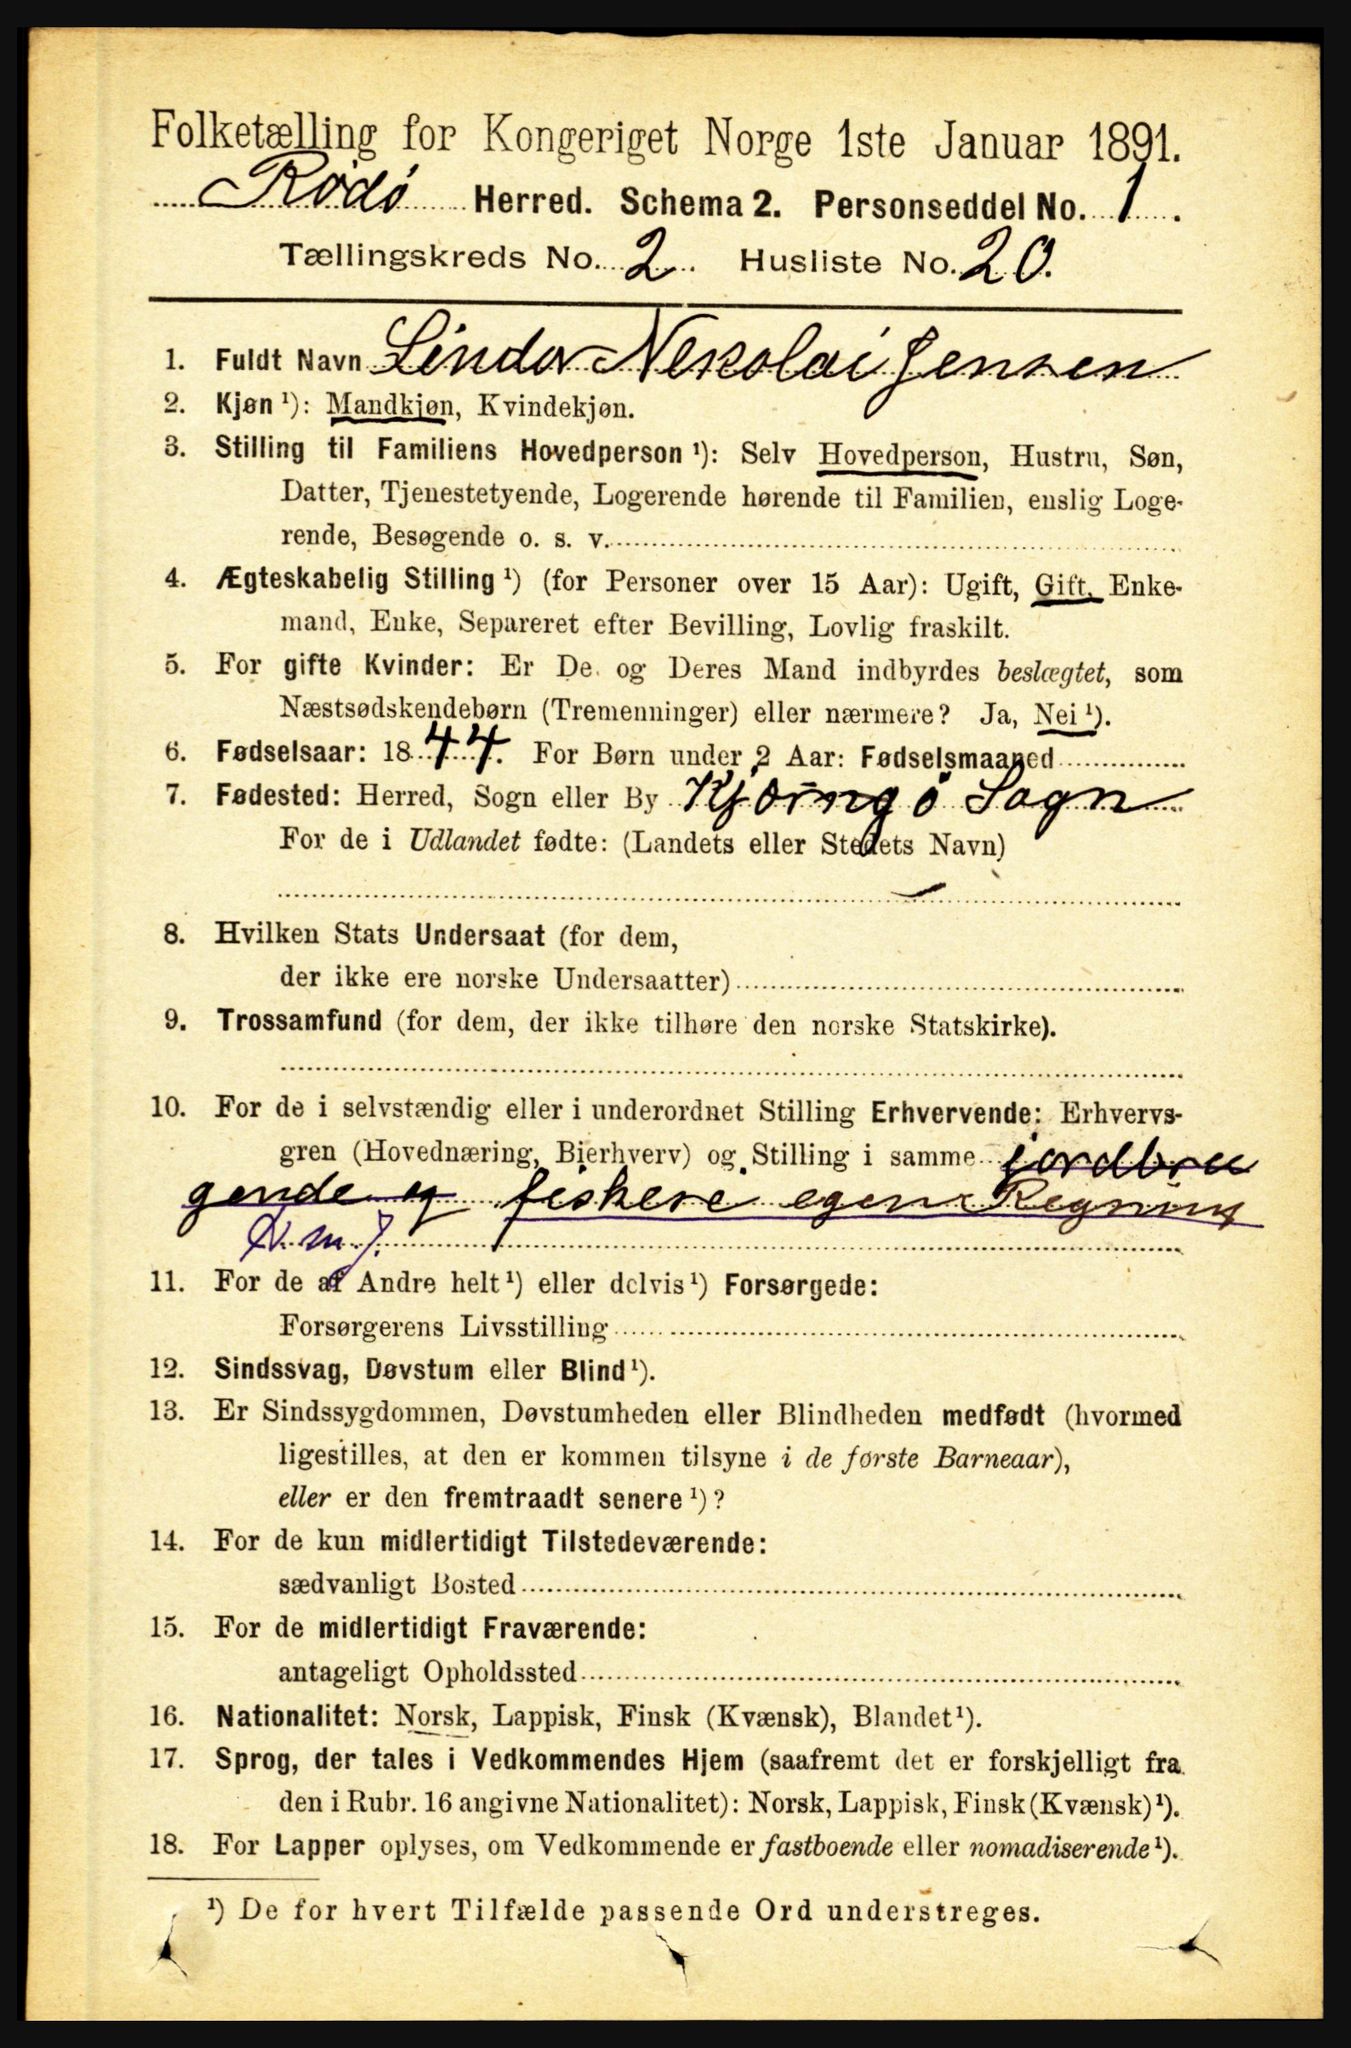 Folketælling for Kongeriget Norge 1ste Januar 1891.
Rødø Herred. Schema 2. Personseddel No. 1.
Tællingskreds No. 2. Husliste No. 20.
1. Fuldt Navn Lindor Nekolai Jensen
2. Kjøn ¹): Mandkjøn, Kvindekjøn.
3. Stilling til Familiens Hovedperson ¹): Selv Hovedperson, Hustru, Søn,
Datter, Tjenestetyende, Logerende hørende til Familien, enslig Loge-
rende, Besøgende o. s. v.
4. Ægteskabelig Stilling ¹) (for Personer over 15 Aar): Ugift, Gift, Enke-
mand, Enke, Separeret efter Bevilling, Lovlig fraskilt.
5. For gifte Kvinder: Er De og Deres Mand indbyrdes beslægtet, som
Næstsødskendebørn (Tremenninger) eller nærmere? Ja, Nei ¹).
6. Fødselsaar: 1844. For Børn under 2 Aar: Fødselsmaaned
7. Fødested: Herred, Sogn eller By Kjæringø Sogn
For de i Udlandet fødte: (Landets eller Stedets Navn)
8. Hvilken Stats Undersaat (for dem,
der ikke ere norske Undersaatter)
9. Trossamfund (for dem, der ikke tilhøre den norske Statskirke).
10. For de i selvstændig eller i underordnet Stilling Erhvervende: Erhvervs-
gren (Hovednæring, Bierhverv) og Stilling i samme jordbru
gende og fiskere egen Regning
11. For de af Andre helt ¹) eller delvis ¹) Forsørgede:
Forsørgerens Livsstilling
12. Sindssvag, Døvstum eller Blind ¹).
13. Er Sindssygdommen, Døvstumheden eller Blindheden medfødt (hvormed
ligestilles, at den er kommen tilsyne i de første Barneaar),
eller er den fremtraadt senere ¹)?
14. For de kun midlertidigt Tilstedeværende:
sædvanligt Bosted
15. For de midlertidigt Fraværende:
antageligt Opholdssted
16. Nationalitet: Norsk, Lappisk, Finsk (Kvænsk), Blandet ¹).
17. Sprog, der tales i Vedkommendes Hjem (saafremt det er forskjelligt fra
den i Rubr. 16 angivne Nationalitet): Norsk, Lappisk, Finsk (Kvænsk) ¹).
18. For Lapper oplyses, om Vedkommende er fastboende eller nomadiserende ¹).
¹) De for hvert Tilfælde passende Ord understreges.